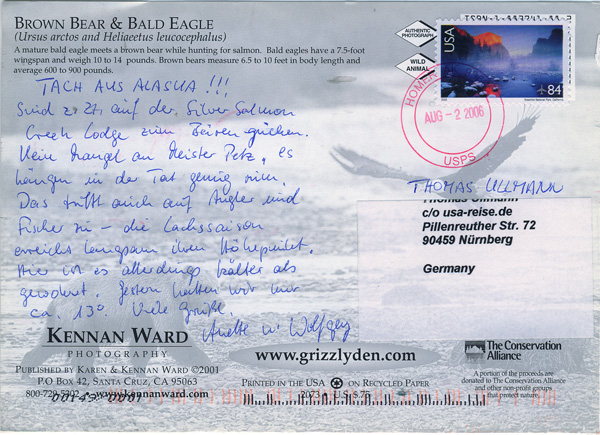 BROWN BEAR & BALD EAGLE
(Ursus arctos and Heliaeetus leucocephalus)
A mature bald eagle meets a brown bear while hunting for salmon. Bald eagles have a 7.5-foot
wingspan and weigh 10 to 14 pounds. Brown bears measure 6.5 to 10 feet in body length and
average 600 to 900 pounds.
TACH AUS ALASKA !!!
Sind z. Zt. auf der Silver Salmon
Creek Lodge zum Bären gucken.
Kein Mangel an Meister Petz, es
hängen in der Tat genug rum.
Das trifft auch auf Angler und
Fischer zu – die Lachssaison
erreicht langsam ihren Höhepunkt.
Hier ist es allerdings kälter als
gewohnt. Gestern hatten wir nur
ca. 13°. Viele Grüße.
Anette u. Wolfgang
AUTHENTIC
PHOTOGRAPH
WILD
ANIMAL
USA
84
HOMER
AUG - 2 2006
USPS
THOMAS ULLMANN
Thomas Ullmann
c/o usa-reise.de
Pillenreuther Str. 72
90459 Nürnberg
Germany
KENNAN WARD
PHOTOGRAPHY
PUBLISHED BY KAREN & KENNAN WARD ©2001
P.O BOX 42, SANTA CRUZ, CA 95063
800-729-5302 • www.kennanward.com
www.grizzlyden.com
PRINTED IN THE USA ON RECYCLED PAPER
2073 U.S. $.75
The Conservation
Alliance
A portion of the proceeds are
donated to The Conservation Alliance
and other non-profit groups
that protect nature.